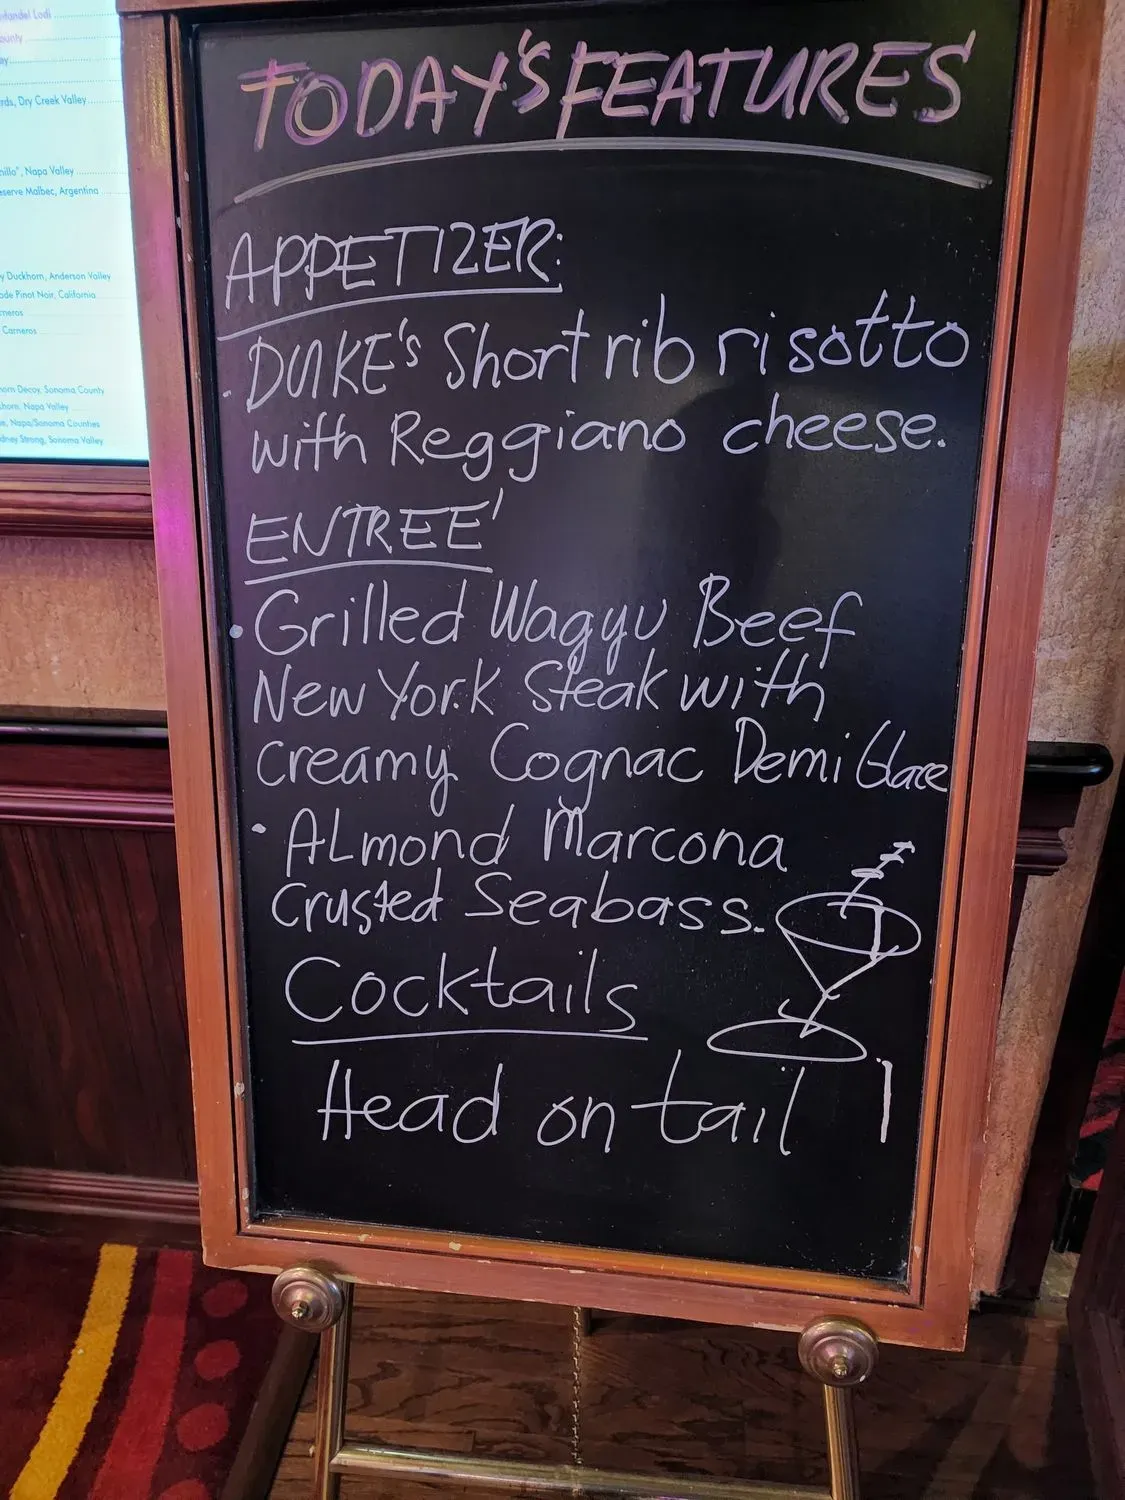 TODAY'S FEATURES
APPETIZER:
Short rib risotto
with Reggiano cheese.
ENTREE'
• Grilled Wagyu Beef
New York Steak with
creamy Cognac Demi Glace
• ALmond Marcona
Crusted Seabass.
Cocktails
Head on tail
Zinfandel Lodi
ounty
ay
rds, Dry Creek Valley
nillo", Napa Valley
eserve Malbec, Argentina
y Duckhorn, Anderson Valley
ode Pinot Noir, California
rneros
Carneros
horn Decoy, Sonoma County
khorn, Napa Valley
e, Napa/Sonoma Counties
dney Strong, Sonoma Valley